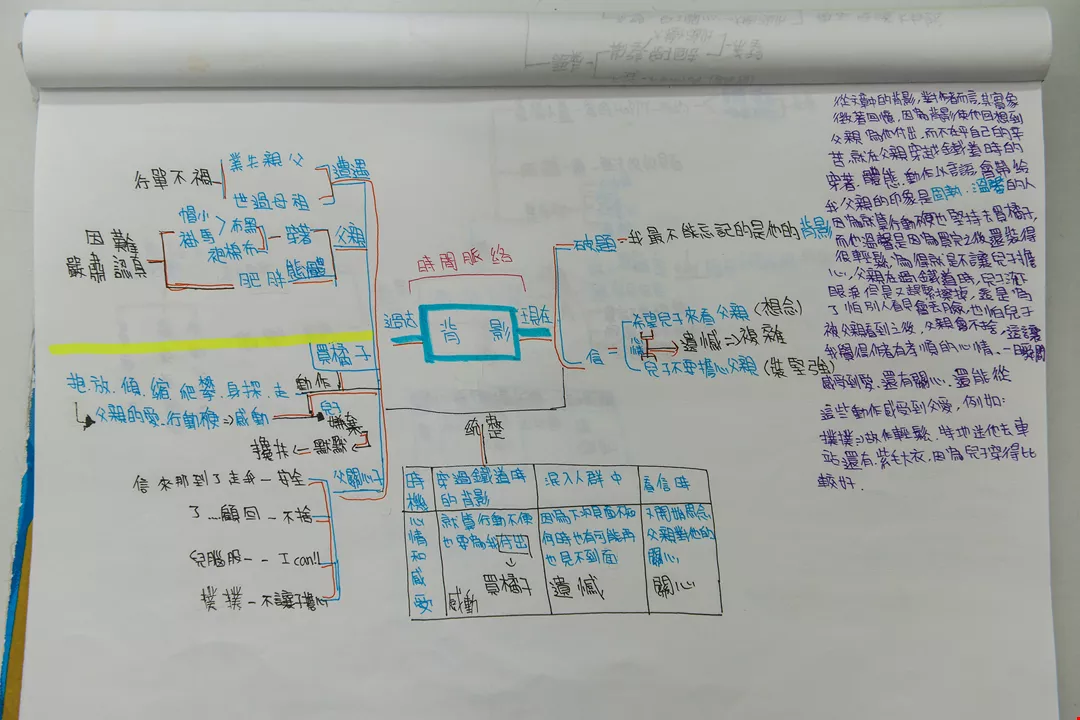 時間脈絡
背影
過去
現在
遭遇
業失親父
世過母祖
行單不禍
父親
穿著
帽小
褂馬 > 布黑
袍棉布
肥胖 體態
嚴肅 認真
買橘子
動作
走.探.身.攀.爬.縮.傾.放.抱
父親的愛.行動硬⇒感動
兒子
嫌棄
默默
擦
父關心子
信來那到了走我 – 安全
了....顧回 – 不捨
兒腦服 – – I can!!
撲撲 – 不讓子擔心
破題 – 我最不能忘記的是他的背影
信 =
心情
希望兒子來看父親 (想念)
遺憾⇒複雜
兒子不要擔心父親 (裝堅強)
統整
時機
穿過鐵道時
的背影
混入人群中
看信時
心情和感受
就算行動不便
也要為我付出
買橘子
感動
因為下次見面不知
何時也有可能再
也見不到面
遺憾
又開始思念
父親對他的
關心
關心
從文章中的背影,對作者而言,其實象
徵著回憶,因為背影使他回想到
父親為他付出,而不在乎自己的辛
苦,就在父親穿越鐵道時的
穿著.體態.動作以言語,會帶給
我父親的印象是固執.溫馨的人
因為就算行動硬也堅持去買橘子,
而他溫馨是因為買完之後還裝得
很輕鬆,為得就是不讓兒子擔
心,父親在過鐵道時,兒子流下
眼淚但是又趕緊擦拭,這是為
了怕別人看見會丟臉,也怕兒子
被父親看到之後,父親會不捨,這讓
我覺得作者有孝順的心情,一瞬間
感受到愛.還有關心.還能從
這些動作感受到父愛,例如:
撲撲⇒故作輕鬆.特地送他去車
站還有.紫大衣,因為兒子穿得比
較好.